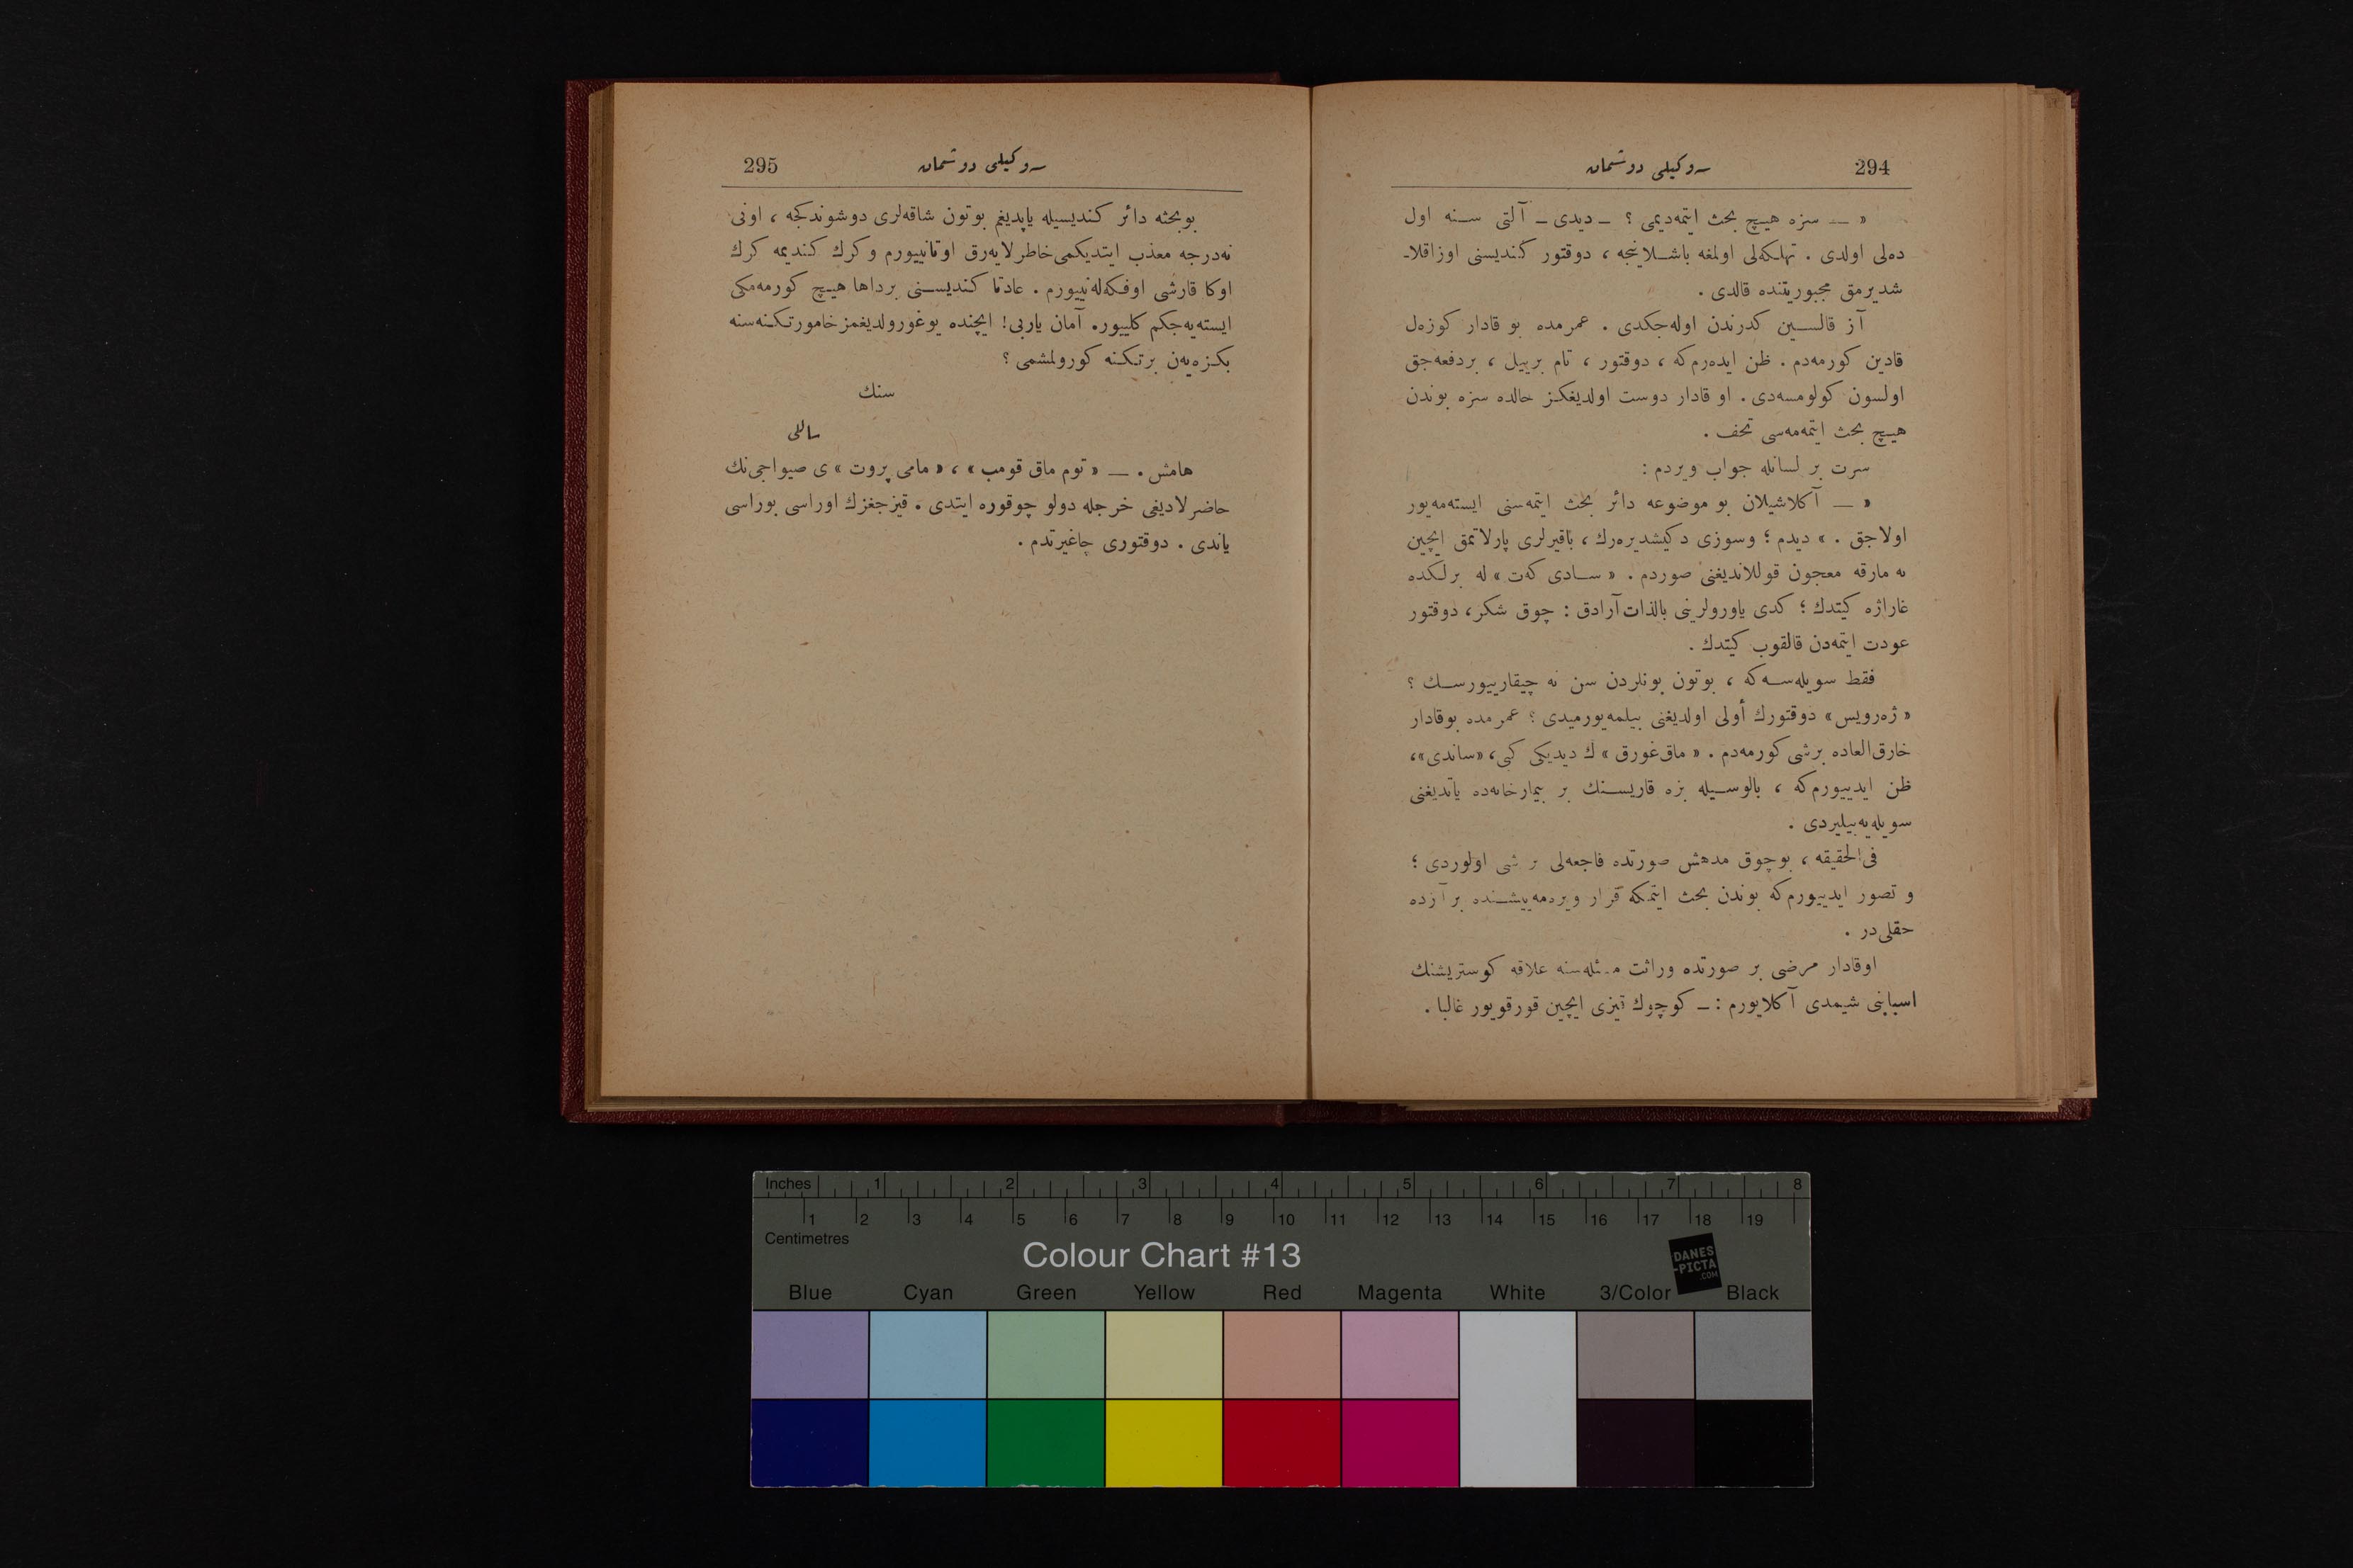 294
سوكيلى دوشمان
« — سزه هيچ بحث ايتمه‌ديمى ؟ — ديدى — آلتى سنه اول
ده‌لى اولدى . تهلكه‌لى اولمغه باشلاينجه ، دوقتور كنديسنى اوزاقلا-
شديرمق مجبوريتنده قالدى .
آز قالسين كدرندن اوله‌جكدى . عمرمده بو قادار كوزه‌ل
قادين كورمه‌دم . ظن ايده‌رم‌كه ، دوقتور ، تام بر ييل ، بردفعه‌جق
اولسون كولومسه‌دى . او قادار دوست اولديغكز حالده سزه بوندن
هيچ بحث ايتمه‌مه‌سى تحف .
سرت بر لسانله جواب ويردم :
« — آكلاشيلان بو موضوعه دائر بحث ايتمه‌سنى ايسته‌مه‌يور
اولاجق . » ديدم ؛ وسوزى دكيشديره‌رك ، باقيرلرى پارلاتمق ايچين
نه مارقه معجون قوللانديغنى صوردم . « سادى كه‌ت » له برلكده
غاراژه كيتدك ؛ كدى ياورولرينى بالذات آرادق : چوق شكر ، دوقتور
عودت ايتمه‌دن قالقوب كيتدك .
فقط سويله‌سه‌كه ، بوتون بونلردن سن نه چيقارييورسك ؟
« ژه‌رويس » دوقتورك أولى اولديغنى بيلمه‌يورميدى ؟ عمرمده بوقادار
خارق‌العاده برشى كورمه‌دم . « ماق‌غورق » ك ديديكى كبى ، « ساندى » ،
ظن ايدييورم‌كه ، بالوسيله بزه قاريسنك بر بيمارخانه‌ده ياتديغنى
سويله‌يه‌بيليردى .
فى‌الحقيقه ، بوچوق مدهش صورتده فاجعه‌لى بر شى اولوردى ؛
و تصور ايدييورم‌كه بوندن بحث ايتمكه قرار ويرمه‌ييشنده بر آزده
حقلى‌در .
اوقادار مرضى بر صورتده وراثت مسئله‌سنه علاقه كوستريشنك
اسبابنى شيمدى آكلايورم : — كوچوك قيزى ايچين قورقويور غالبا .
295
سوكيلى دوشمان
بوبحثه دائر كنديسيله ياپديغم بوتون شاقه‌لرى دوشوندكجه ، اونى
نه‌درجه معذب ايتديكمى خاطرلايه‌رق اوتانييورم و كرك كنديمه كرك
اوكا قارشى اوفكه‌له‌نييورم . عادتا كنديسنى برداها هيچ كورمه‌مكى
ايسته‌يه‌جكم كلييور . آمان ياربى ! ايچنده يوغورولديغمز خامورتكنه‌سنه
بكزه‌يه‌ن برتكنه كورولمشمى ؟
سنك
ساللى
هامش . — « توم ماق قومب » ، « مامى پروت » ى صيواجى‌نك
حاضرلاديغى خرجله دولو چوقوره ايتدى . قيزجغزك اوراسى بوراسى
ياندى . دوقتورى چاغيرتدم .
Inches 1 2 3 4 5 6 7 8
1 2 3 4 5 6 7 8 9 10 11 12 13 14 15 16 17 18 19
Centimetres
Colour Chart #13
DANES
-PICTA
.COM
Blue Cyan Green Yellow Red Magenta White 3/Color Black